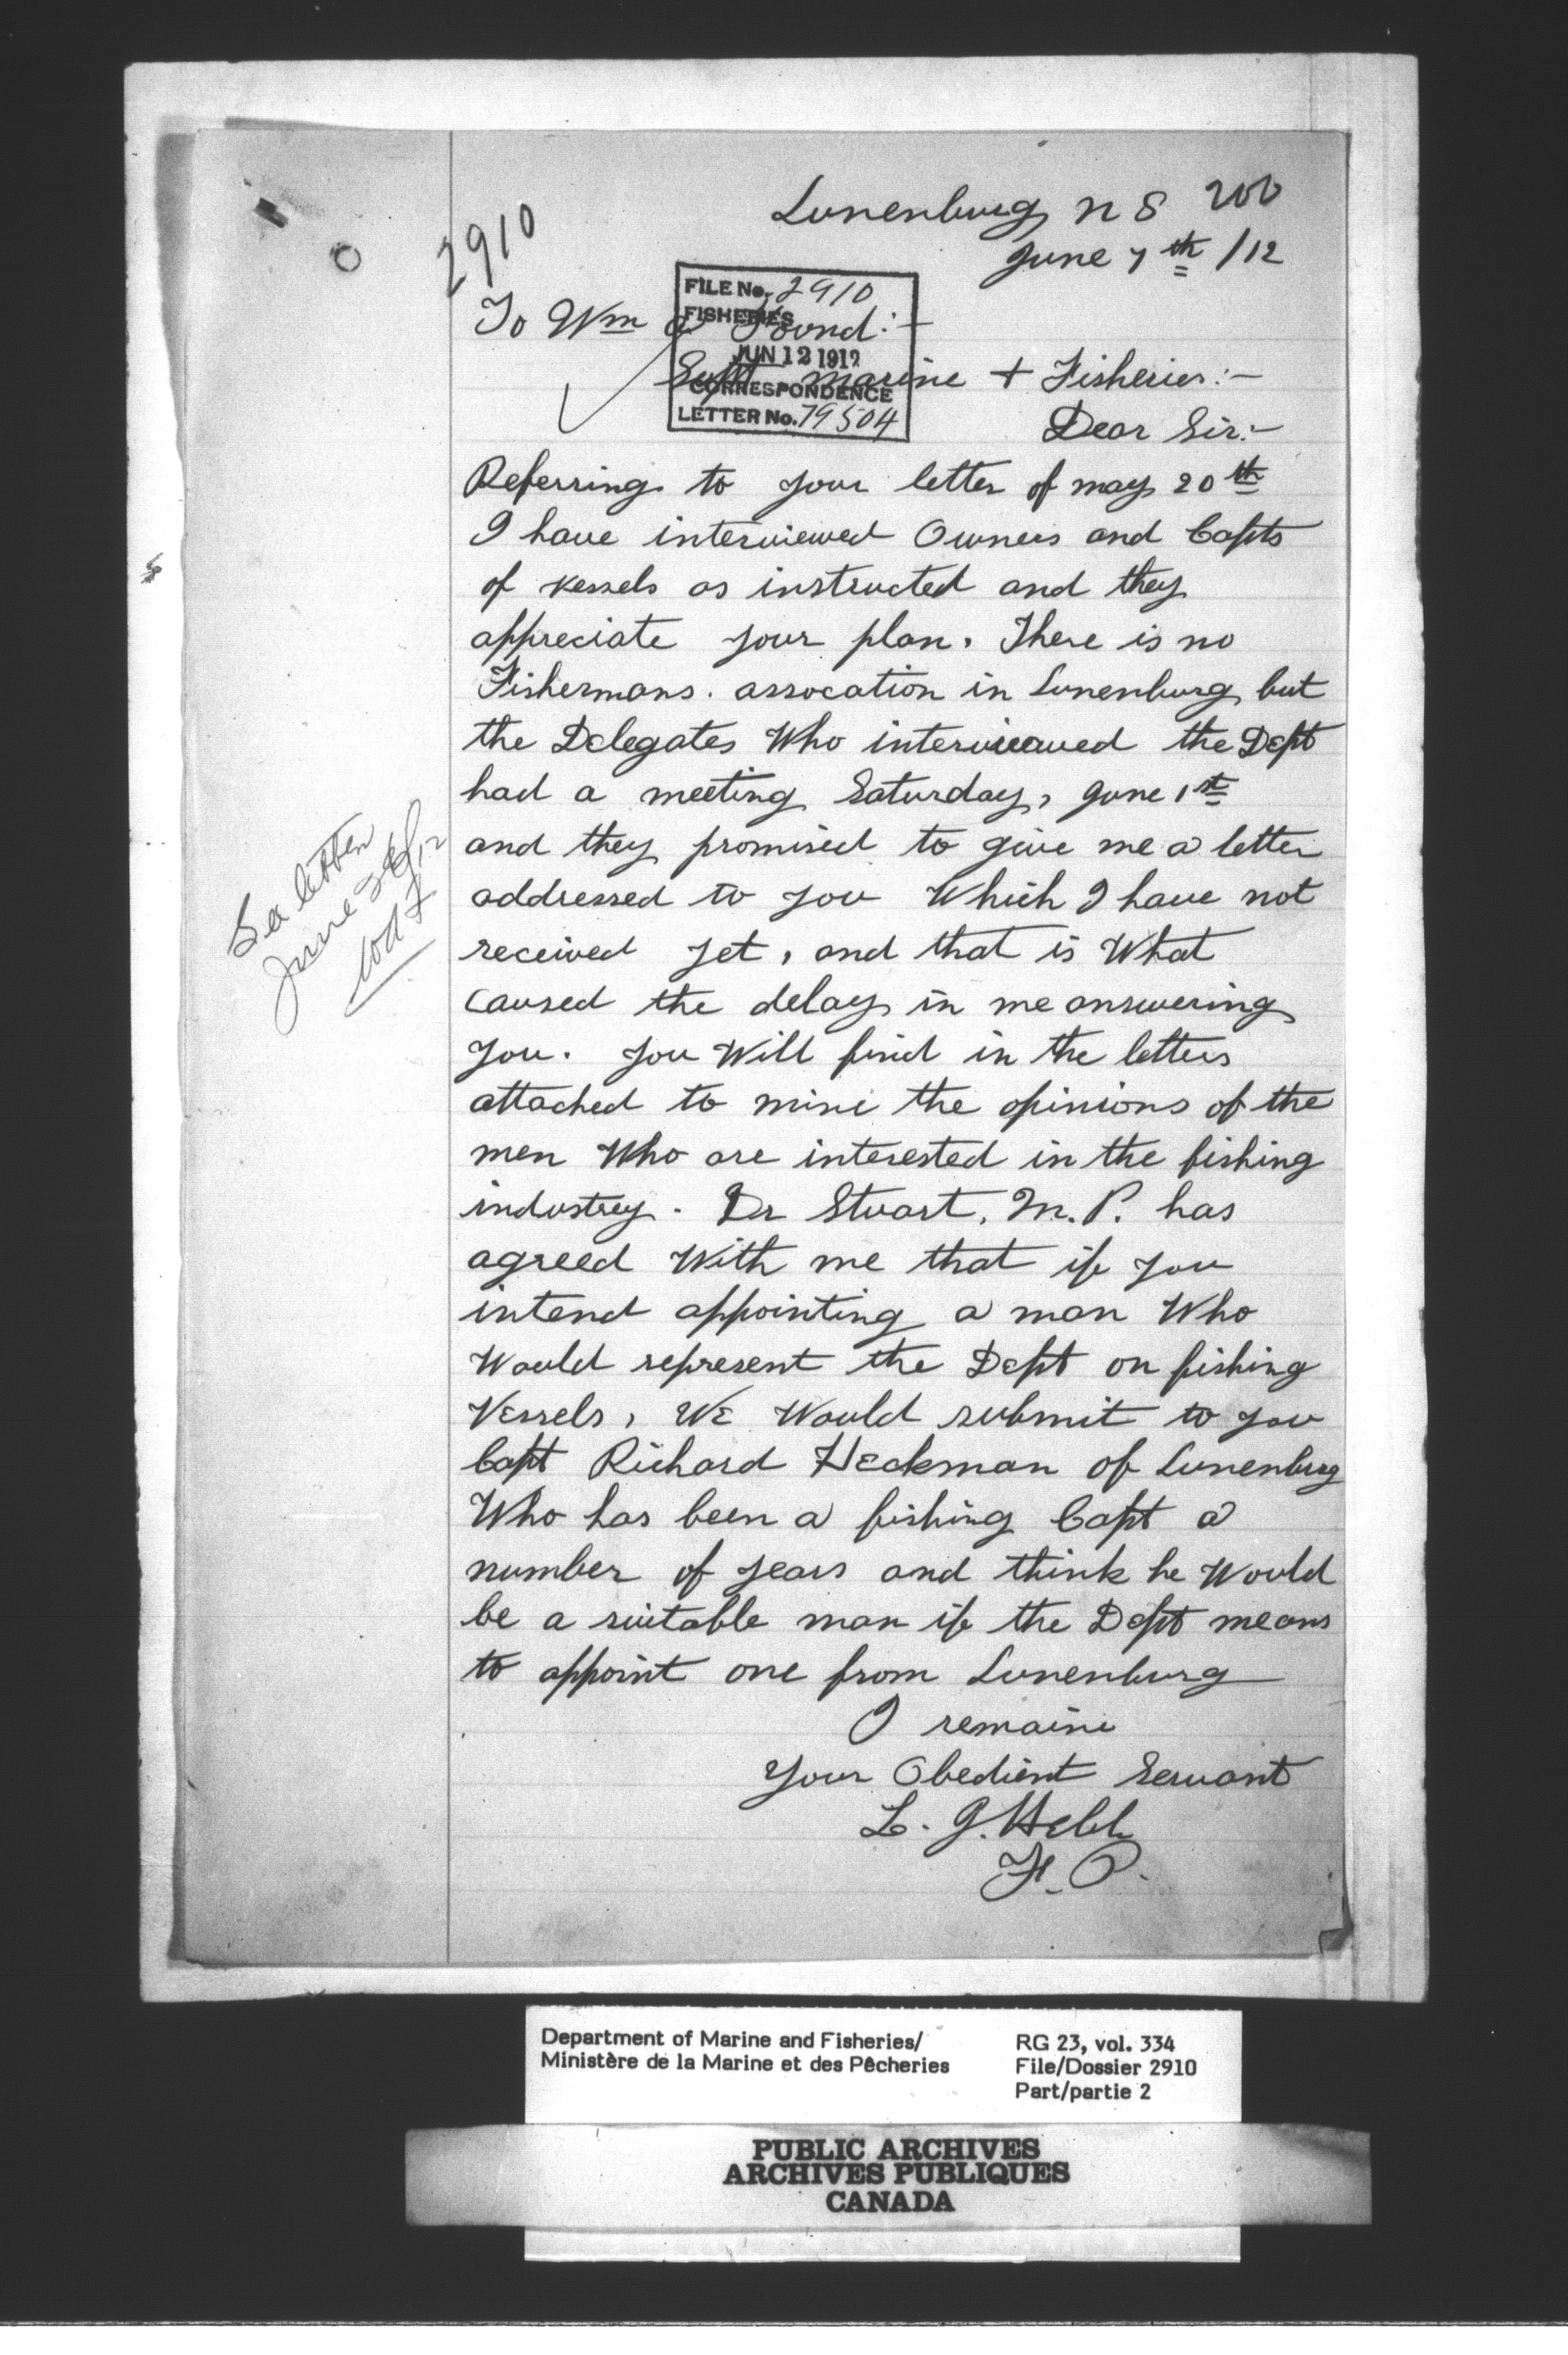 Lunenburg N S 200
June 7th /12
2910
FILE No. 2910
FISHERIES
JUN 12 1912
CORRESPONDENCE
LETTER No. 79504
To Wm a Found:-
Supt marine + Fisheries:-
Dear Sir:-
Referring to your letter of may 20th
I have interviewed Owners and Capts
of vessels as instructed and they
appreciate your plan. There is no
Fishermans. assocation in Lunenburg but
the Delegates Who interviewed the Dept
had a meeting Saturday, June 1st
and they promised to give me a letter
addressed to you Which I have not
received yet, and that is What
caused the delay in me answering
you. you Will find in the letters
attached to mine the opinions of the
men Who are interested in the fishing
industry. Dr Stuart, M.P. has
agreed With me that if you
intend appointing a man Who
Would represent the Dept on fishing
Vessels, We Would submit to you
Capt Richard Heckman of Lunenburg
Who has been a fishing Capt a
number of years and think he Would
be a suitable man if the Dept means
to appoint one from Lunenburg
I remaine
Your Obedient Servant
L. J. Hebb
F. O.
letter
June
/12
WAF
Department of Marine and Fisheries/
Ministère de la Marine et des Pêcheries
RG 23, vol. 334
File/Dossier 2910
Part/partie 2
PUBLIC ARCHIVES
ARCHIVES PUBLIQUES
CANADA